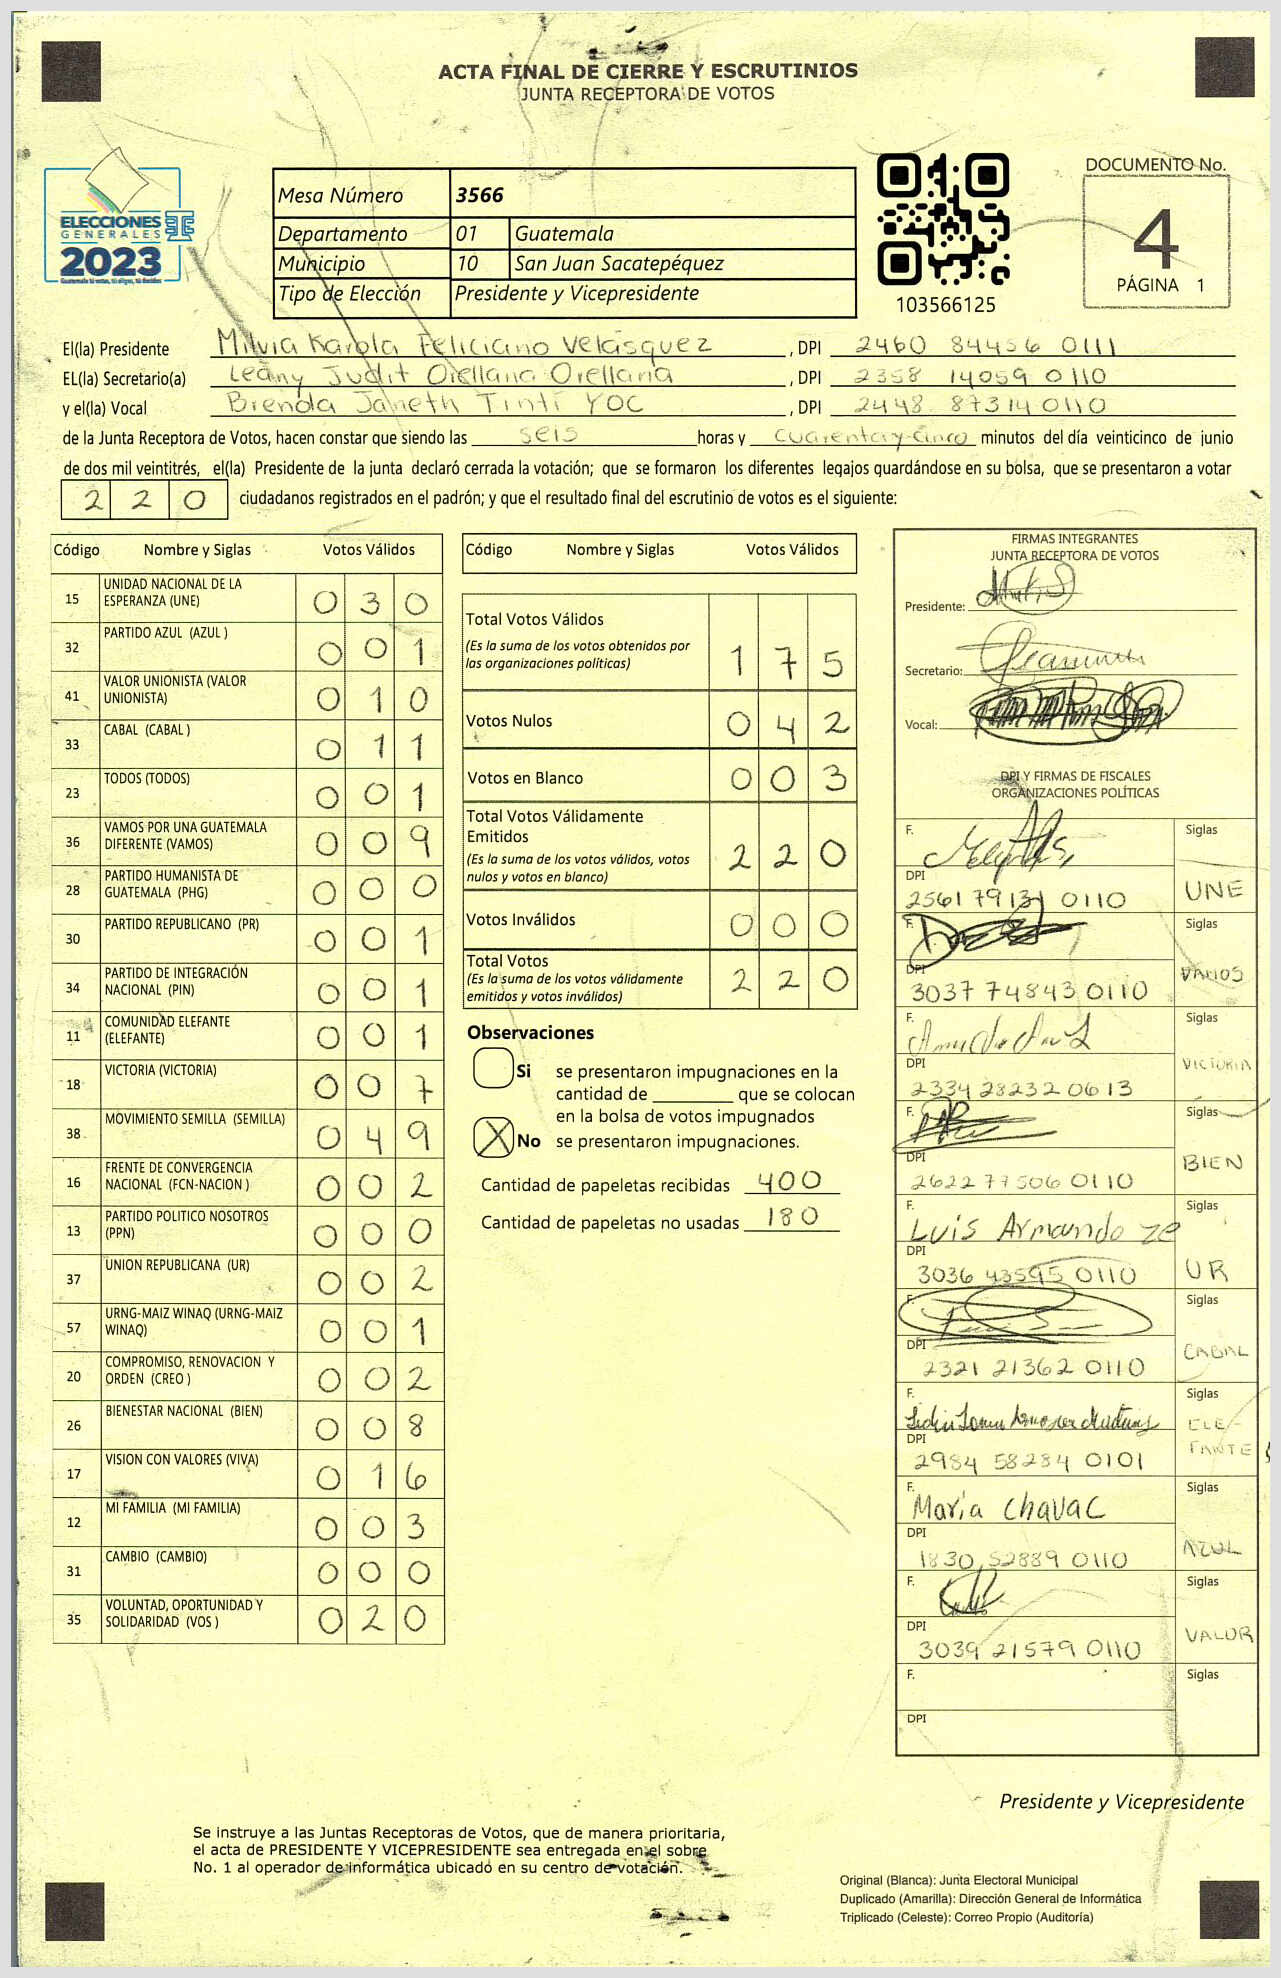 ACTA FINAL DE CIERRE Y ESCRUTINIOS
JUNTA RECEPTORA DE VOTOS
ELECCIONES
GENERALES
2023
Guatemala tú votas, tú eliges, tú decides
Mesa Número 3566
Departamento 01 Guatemala
Municipio 10 San Juan Sacatepéquez
Tipo de Elección Presidente y Vicepresidente
103566125
DOCUMENTO No.
4
PÁGINA 1
El(la) Presidente Milvia Karola Feliciano Velásquez , DPI 2460 84456 0111
EL(la) Secretario(a) Leany Judit Orellana Orellana , DPI 2358 14059 0110
y el(la) Vocal Brenda Janeth Tinti YOC , DPI 2448 87314 0110
de la Junta Receptora de Votos, hacen constar que siendo las seis horas y cuarenta y cinco minutos del día veinticinco de junio
de dos mil veintitrés, el(la) Presidente de la junta declaró cerrada la votación; que se formaron los diferentes legajos quardándose en su bolsa, que se presentaron a votar
2 2 0 ciudadanos registrados en el padrón; y que el resultado final del escrutinio de votos es el siguiente:
Código Nombre y Siglas Votos Válidos
15 UNIDAD NACIONAL DE LA ESPERANZA (UNE) 0 3 0
32 PARTIDO AZUL (AZUL ) 0 0 1
41 VALOR UNIONISTA (VALOR UNIONISTA) 0 1 0
33 CABAL (CABAL ) 0 1 1
23 TODOS (TODOS) 0 0 1
36 VAMOS POR UNA GUATEMALA DIFERENTE (VAMOS) 0 0 9
28 PARTIDO HUMANISTA DE GUATEMALA (PHG) 0 0 0
30 PARTIDO REPUBLICANO (PR) 0 0 1
34 PARTIDO DE INTEGRACIÓN NACIONAL (PIN) 0 0 1
11 COMUNIDAD ELEFANTE (ELEFANTE) 0 0 1
18 VICTORIA (VICTORIA) 0 0 7
38 MOVIMIENTO SEMILLA (SEMILLA) 0 4 9
16 FRENTE DE CONVERGENCIA NACIONAL (FCN-NACION ) 0 0 2
13 PARTIDO POLITICO NOSOTROS (PPN) 0 0 0
37 UNION REPUBLICANA (UR) 0 0 2
57 URNG-MAIZ WINAQ (URNG-MAIZ WINAQ) 0 0 1
20 COMPROMISO, RENOVACION Y ORDEN (CREO ) 0 0 2
26 BIENESTAR NACIONAL (BIEN) 0 0 8
17 VISION CON VALORES (VIVA) 0 1 6
12 MI FAMILIA (MI FAMILIA) 0 0 3
31 CAMBIO (CAMBIO) 0 0 0
35 VOLUNTAD, OPORTUNIDAD Y SOLIDARIDAD (VOS ) 0 2 0
Código Nombre y Siglas Votos Válidos
Total Votos Válidos
(Es la suma de los votos obtenidos por
las organizaciones políticas) 1 7 5
Votos Nulos 0 4 2
Votos en Blanco 0 0 3
Total Votos Válidamente
Emitidos
(Es la suma de los votos válidos, votos
nulos y votos en blanco) 2 2 0
Votos Inválidos 0 0 0
Total Votos
(Es la suma de los votos válidamente
emitidos y votos inválidos) 2 2 0
Observaciones
Si se presentaron impugnaciones en la
cantidad de ________ que se colocan
en la bolsa de votos impugnados
X No se presentaron impugnaciones.
Cantidad de papeletas recibidas 400
Cantidad de papeletas no usadas 180
FIRMAS INTEGRANTES
JUNTA RECEPTORA DE VOTOS
Presidente:
Secretario:
Vocal:
DPI Y FIRMAS DE FISCALES
ORGANIZACIONES POLÍTICAS
F. Siglas
DPI
2561 79131 0110 UNE
F. Siglas
DPI
3037 74843 0110 VAMOS
F. Siglas
DPI
2334 28232 0613 VICTORIA
F. Siglas
DPI
2622 77506 0110 BIEN
F. Siglas
Luis Armando
DPI
3036 43595 0110 UR
F. Siglas
DPI
2321 21362 0110 CABAL
F. Siglas
DPI
2984 58284 0101 ELE-
FANTE
F. Siglas
María Chavac
DPI
1830 52889 0110 AZUL
F. Siglas
DPI
3039 21579 0110 VALOR
F. Siglas
DPI
Presidente y Vicepresidente
Se instruye a las Juntas Receptoras de Votos, que de manera prioritaria,
el acta de PRESIDENTE Y VICEPRESIDENTE sea entregada en el sobre
No. 1 al operador de informática ubicado en su centro de votación.
Original (Blanca): Junta Electoral Municipal
Duplicado (Amarilla): Dirección General de Informática
Triplicado (Celeste): Correo Propio (Auditoría)